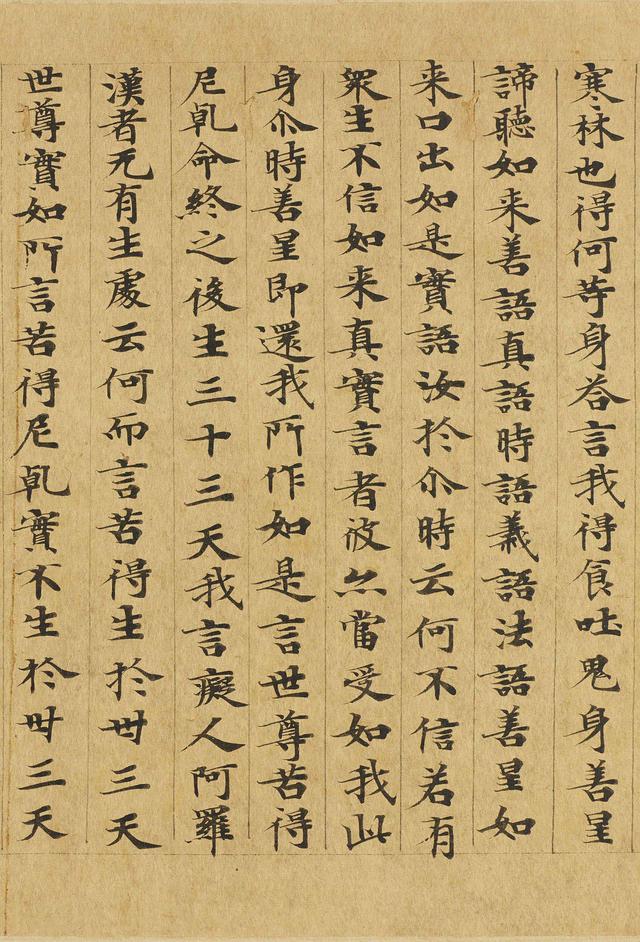 寒林也得何等身荅言我得食吐鬼身善星
諦聽如来善語真語時語義語法語善星如
来口出如是實語汝於尒時云何不信若有
衆生不信如来真實言者彼亦當受如我此
身尒時善星即還我所作如是言世尊苦得
尼乹命終之後生三十三天我言癡人阿羅
漢者无有生處云何而言苦得生於卅三天
世尊實如所言苦得尼乹實不生於卅三天